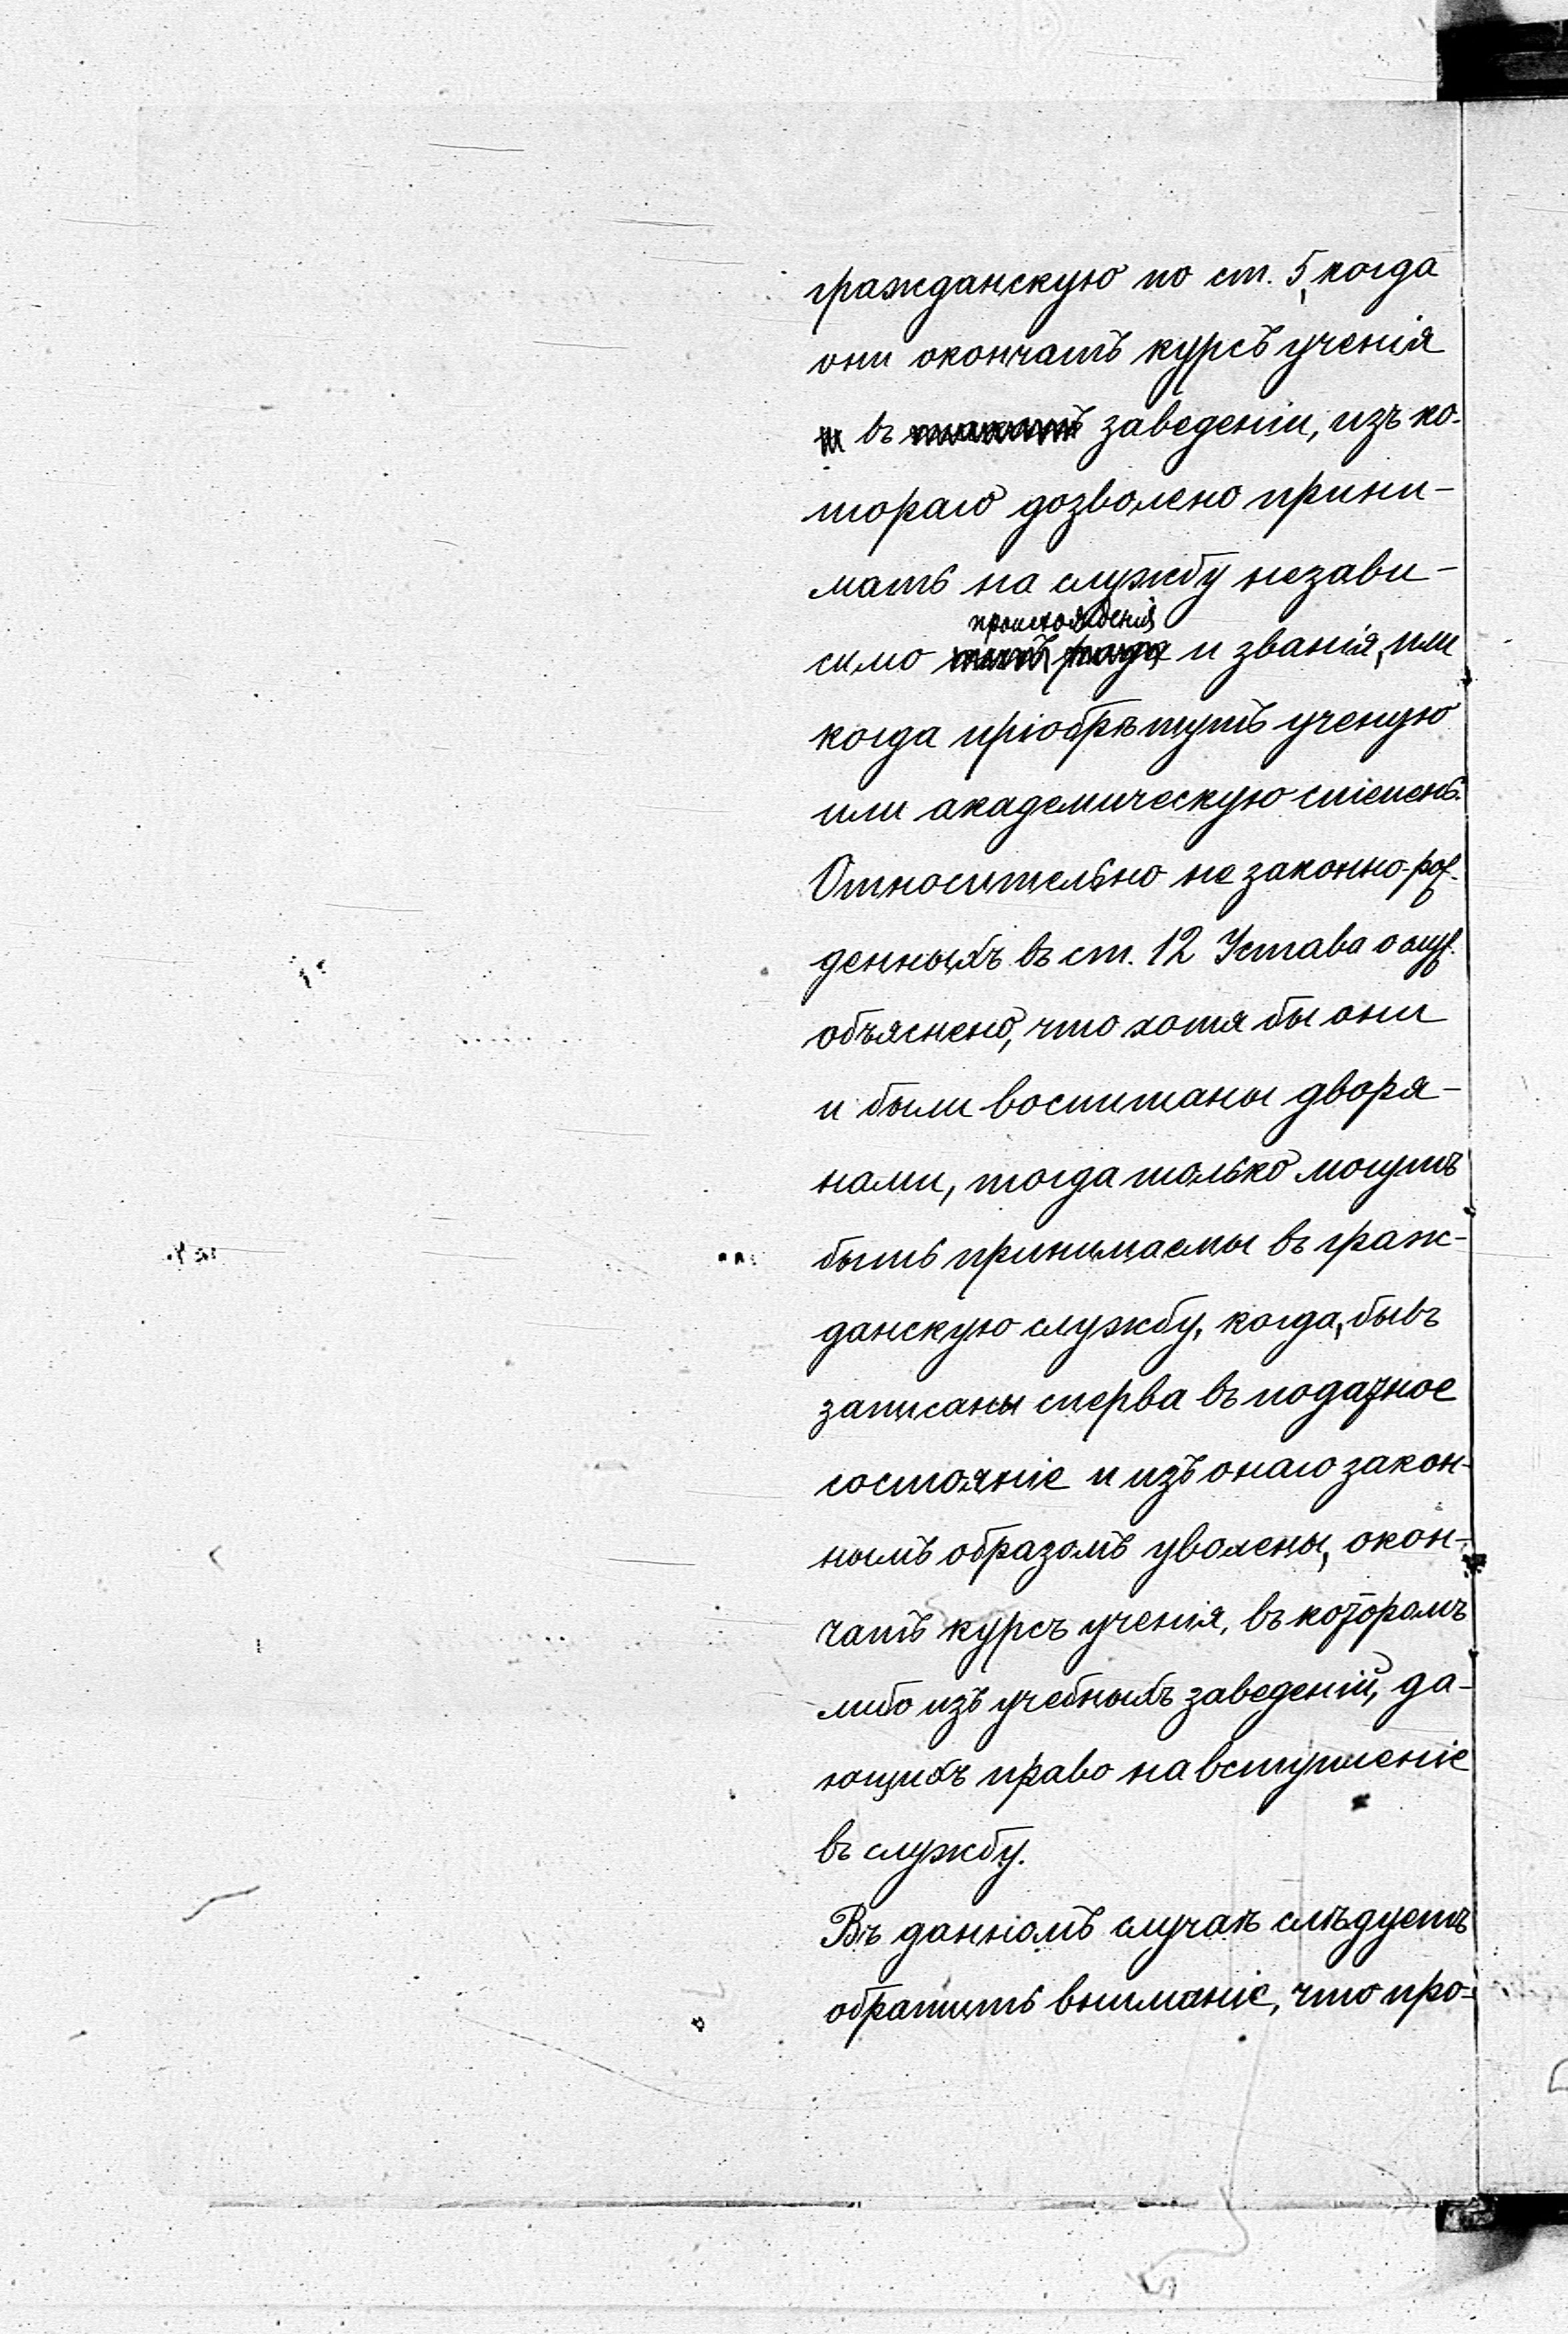 гражданскую по ст. 5, когда
они окончатъ курсъ ученія
въ заведеніи, изъ ко-
тораго дозволено прини-
мать на службу незави-
происхожденія
симо и званія, или
когда пріобрѣтутъ ученую
или академическую степень.
Относительно не законно-рож-
денныхъ въ ст. 12 Устава о служ.
объяснено, что хотя бы они
и были воспитаны дворя-
нами, тогда только могутъ
быть принимаемы въ граж-
данскую службу, когда, бывъ
записаны сперва въ податное
состояніе и изъ онаго закон-
нымъ образомъ уволены, окон-
чатъ курсъ ученія, въ которомъ
либо изъ учебныхъ заведеній, да-
ющихъ право на вступленіе
въ службу.
Въ данномъ случаѣ слѣдуетъ
обратить вниманіе, что про-